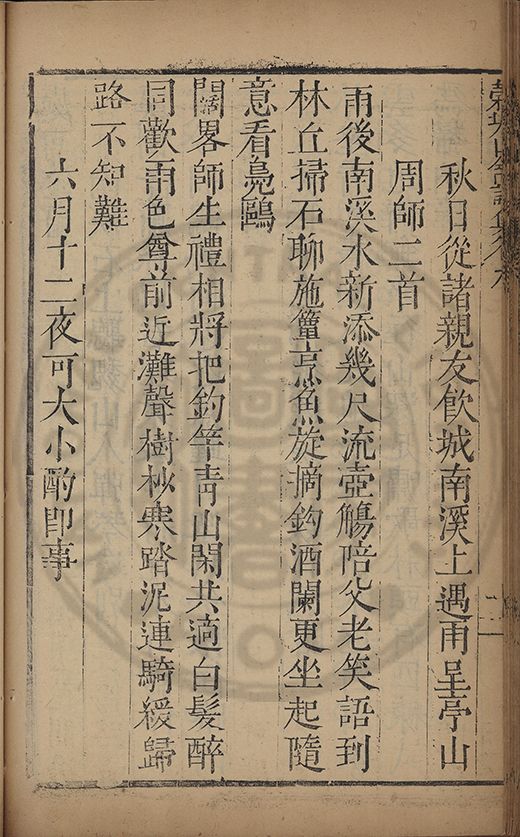 秋日從諸親友飲城南溪上遇雨呈亭山
周師二首
雨後南溪水新添幾尺流壺觴陪父老笑語到
林丘掃石聊施簟烹魚旋摘鈎酒闌更坐起隨
意看鳧鷗
闊畧師生禮相將把釣竿青山閑共適白髮醉
同歡雨色尊前近灘聲樹杪寒踏泥連騎緩歸
路不知難
六月十二夜可大小酌即事